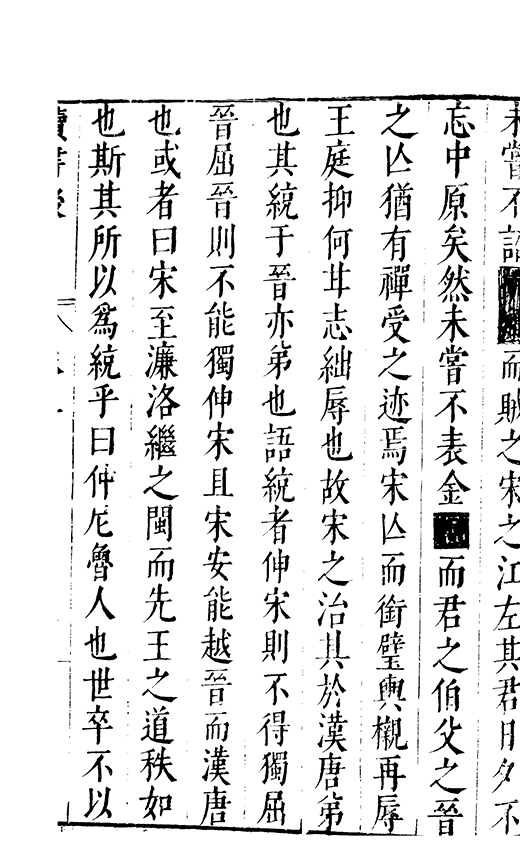 未嘗不詔而賊之宋之江左其君日夕不
忘中原矣然未嘗不表金而君之伯父之晉
之亾猶有禪受之迹焉宋亾而銜璧輿櫬再辱
王庭抑何其志絀辱也故宋之治其於漢唐第
也其統于晉亦第也語統者伸宋則不得獨屈
晉屈晉則不能獨伸宋且宋安能越晉而漢唐
也或者曰宋至濂洛繼之閩而先王之道秩如
也斯其所以爲統乎曰仲尼魯人也世卒不以
讀書後